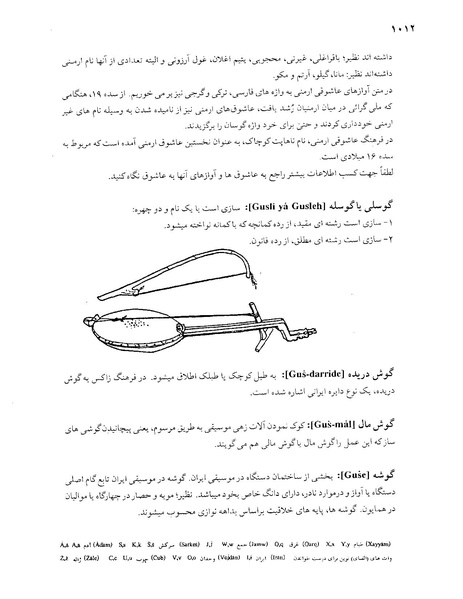 ۱۰۱۲
داشته اند نظیر؛ باقراغلی، غیرتی، محجوبی، یتیم اغلان، غول آرزونی و البته تعدادی از آنها نام ارمنی
داشته‌اند نظیر: مانا، گیلو، آرتم و مکو.
در متن آوازهای عاشوقی ارمنی به واژه های پارسی، ترکی وگرجی نیز بر می خوریم. از سده ۱۹، هنگامی
که ملی گرائی در میان ارمنیان رُشد یافت، عاشوق‌های ارمنی نیز از نامیده شدن به وسیله نام های غیر
ارمنی خودداری کردند و حتیٰ برای خود واژه گوسان را برگزیدند.
در فرهنگ عاشوقی ارمنی، نام ناهاپت کوچاک، به عنوان نخستین عاشوق ارمنی آمده است که مربوط به
سده ۱۶ میلادی است.
لطفاً جهت کسب اطلاعات بیشتر راجع به عاشوق ها و آوازهای آنها به عاشوق نگاه کنید.
گوسلی یا گوسله [Gusli yá Gusleh]: سازی است با یک نام و دو چهره:
۱- سازی است رشته ای مقید، از رده کمانچه که با کمانه نواخته میشود.
۲- سازی است رشته ای مطلق، از رده قانون.
گوش دریده [Guš-darride]: به طبل کوچک یا طبلک اطلاق میشود. در فرهنگ زاکس به گوش
دریده، یک نوع دایره ایرانی اشاره شده است.
گوش مال [Guš-mál]: کوک نمودن آلات زهی موسیقی به طریق مرسوم، یعنی پیچانیدن گوشی های
ساز که این عمل را گوش مال یا گوش مالی هم می گویند.
گوشه [Guše]: بخشی از ساختمان دستگاه در موسیقی ایران. گوشه در موسیقی ایران تابع گام اصلی
دستگاه یا آواز و در موارد نادر، دارای دانگ خاص بخود میباشد. نظیر؛ مویه و حصار در چهارگاه یا موالیان
در همایون. گوشه ها، پایه های خلاقیت براساس بداهه نوازی محسوب میشوند.
A,a Á,á آدم (Ádam) S,s K,k Š,š سرکش (Sarkeš) J,j جمع (Jamw) W,w Q,q غرق (Qarq) X,x V,y خیام (Xayyám)
Z,ž ژاله (Žále) C,c U,u چوب (Cub) V,v O,o وجدان (Vojdán) I,i ایران (Irán) وات های (الفبای) نوین برای درست خواندن